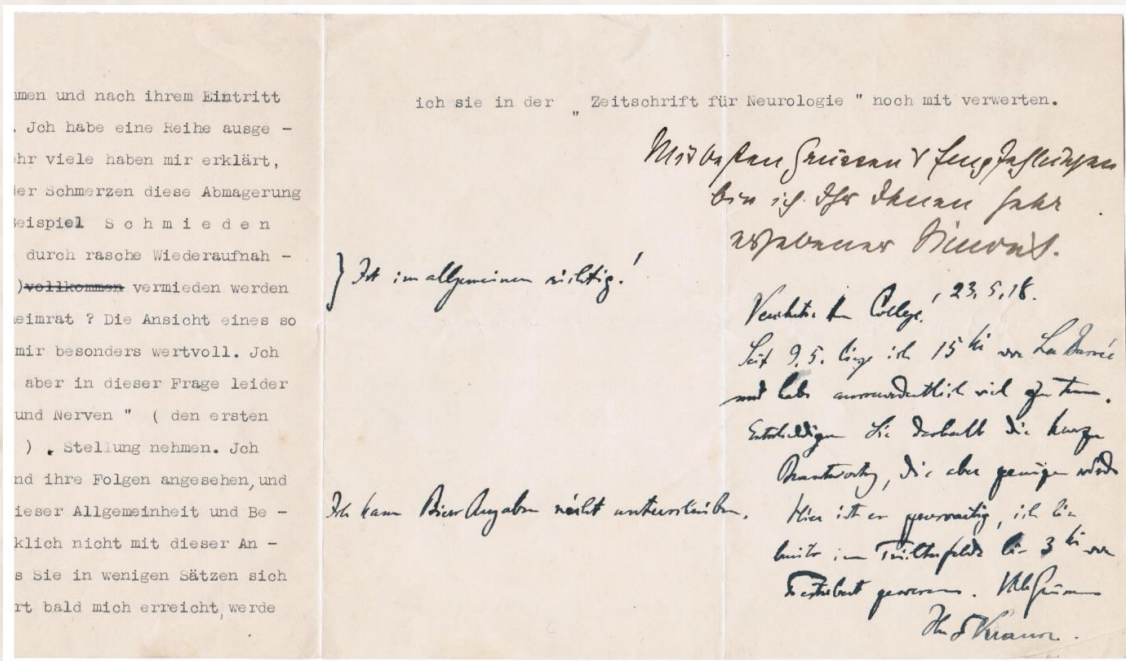 men und nach ihrem Eintritt
. Jch habe eine Reihe ausge -
hr viele haben mir erklärt,
er Schmerzen diese Abmagerung
eispiel S c h m i e d e n
durch rasche Wiederaufnah -
)vollkommen vermieden werden
eimrat ? Die Ansicht eines so
mir besonders wertvoll. Jch
aber in dieser Frage leider
und Nerven " ( den ersten
) . Stellung nehmen. Jch
nd ihre Folgen angesehen, und
ieser Allgemeinheit und Be -
klich nicht mit dieser An -
s Sie in wenigen Sätzen sich
rt bald mich erreicht, werde
ich sie in der „ Zeitschrift für Neurologie " noch mit verwerten.
Mit besten Grüssen & Empfehlungen
bin ich Ihr Ihnen sehr
ergebener
} Ist im allgemeinen richtig!
Ich kann Biers Angaben nicht unterschreiben.
23.5.18.
College,
Seit 9.5. liege ich 15 km vor
und habe ausserordentlich viel zu tun.
Entschuldigen Sie deshalb die kurze
Beantwortung, die aber genügen
Hier ist es ich bin
im 3 km vor
gewesen.
Ihr